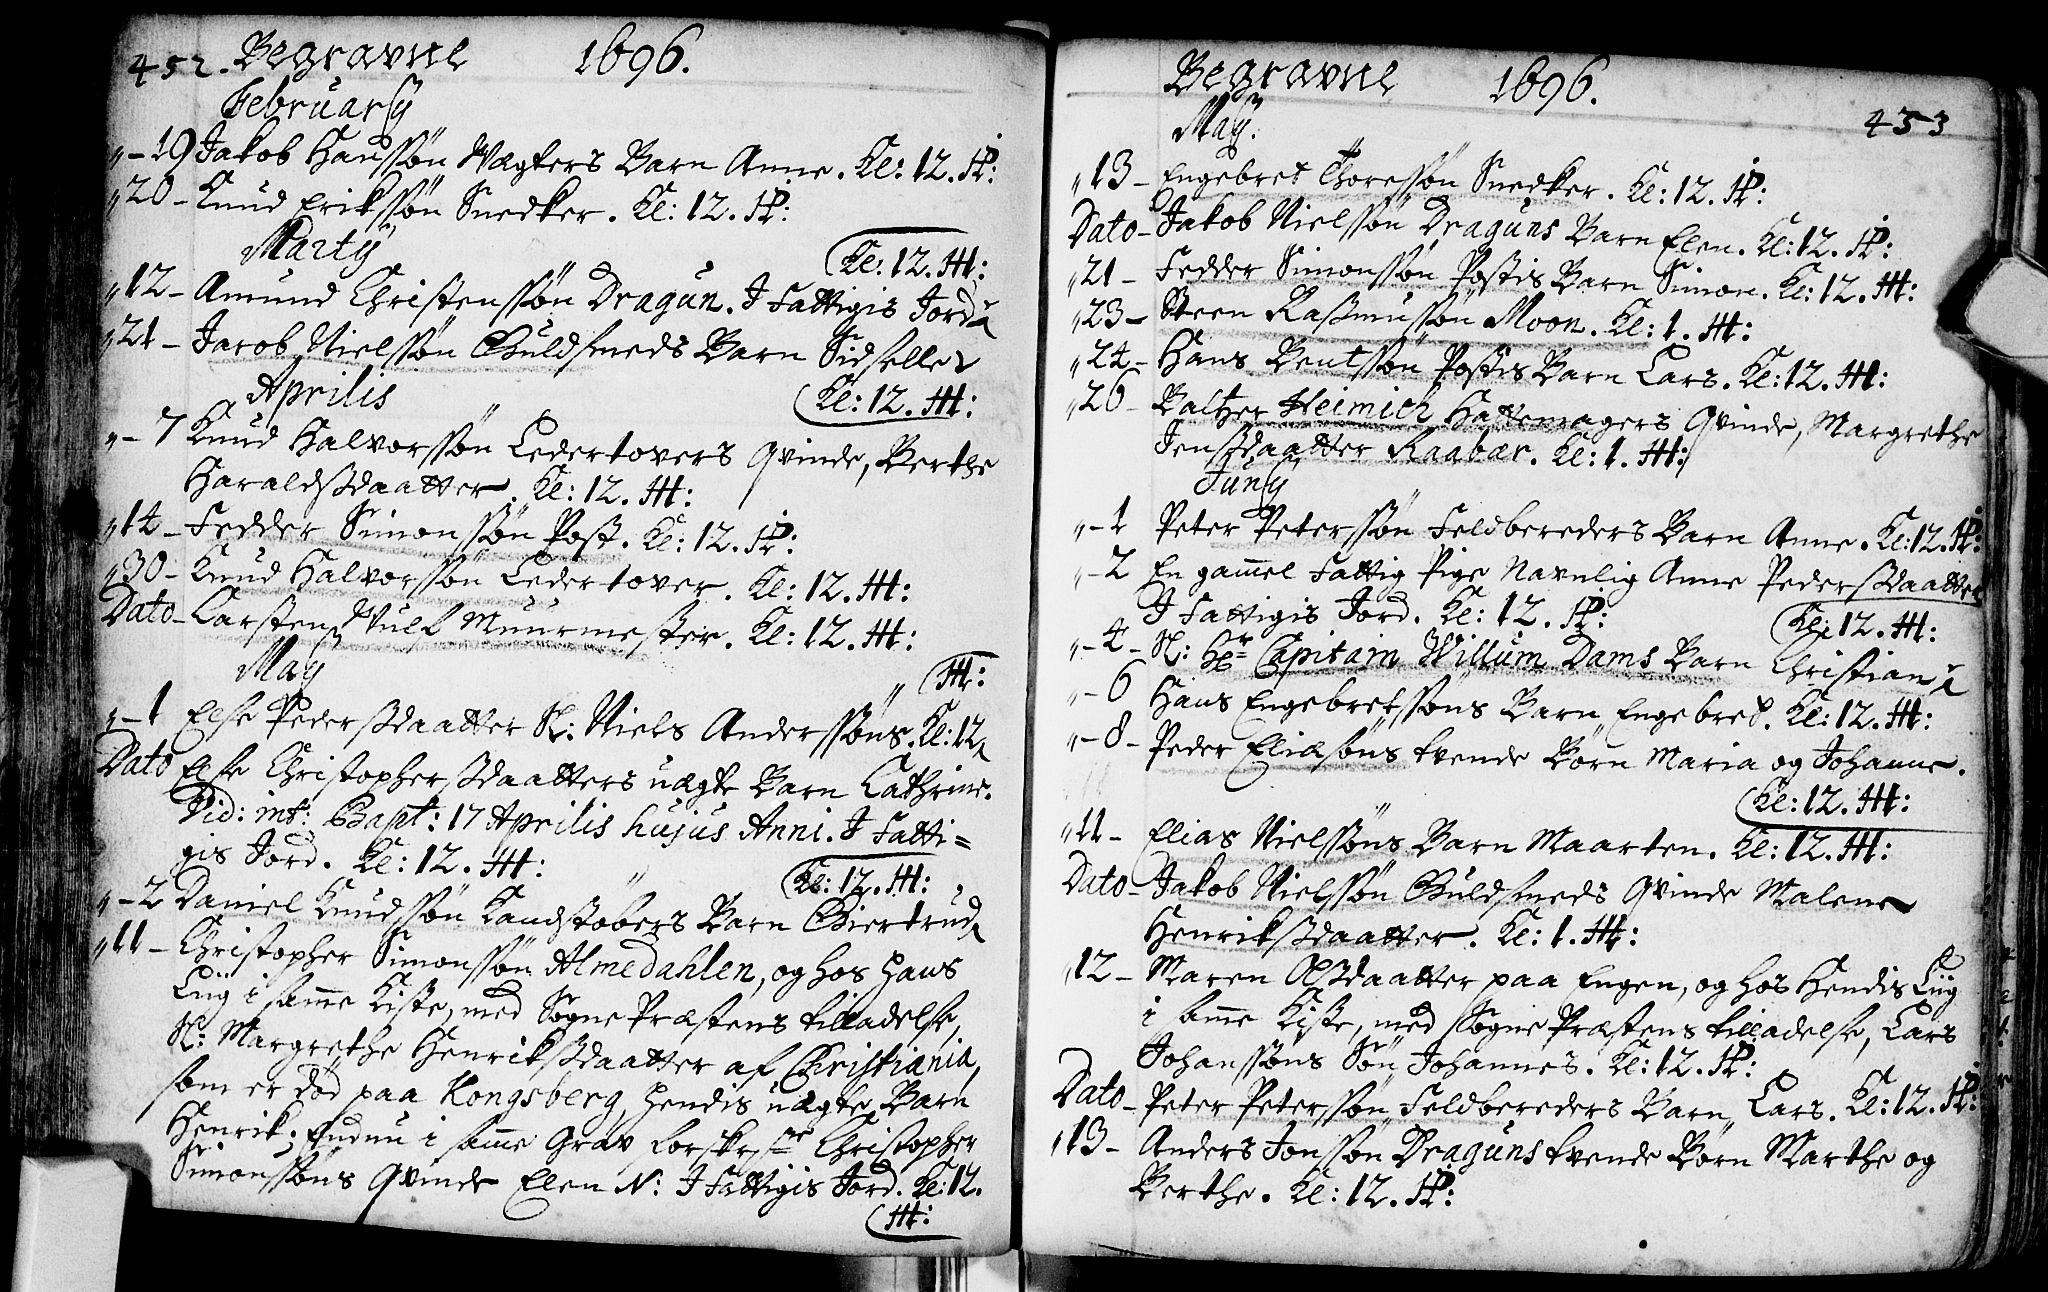 452. Begravne 1696.
February
"-19 Jakob Hanssön Wægters Barn Anne. Kl: 12. P:
"20- Knud Erikssön Snedker. Kl: 12. P:
Marty
(Kl: 12. M:
"12- Amund Christenssön Dragun. I Fattigis Jord
"21- Jacob Nielssön Guldsmeds Barn Sidselle
Aprilis
(Kl: 12. M:
"-7 Knud Halvorssön Ledertovers Qvinde, Berthe
Haraldsdaatter. Kl: 12. M:
"14- Fedder Simonssön Post. Kl: 12. P:
"30- Knud Halvorssön Ledertover. Kl: 12. M:
Dato- Carsten Muurmester. Kl: 12. M:
May
" (M:
"-1 Else Pedersdaatter Sl: Niels Anderssöns. Kl: 12
Dato Else Christophersdaatters uægte Barn Cathrine.
Vid: int: Bapt: 17 Aprilis hujus Anni. I Fatti=
gis Jord. Kl: 12. M:
(Kl: 12. M:
"-2 Daniel Knudssön Kandstöbers Barn Giertrud
"11- Christopher Simonssön Almedahlen, og hos hans
Liig i samme Kiste, med SognePræstens tilladelse,
Sl: Margrethe Henriksdaatter af Christiania,
som er död paa Kongsberg, hendis uægte Barn
Henrik; Endnu i samme Grav forskrefne Christopher
Simonssöns Qvinde Elen N: I Fattigis Jord. Kl: 12.
(M:
Begravne 1696.
453
May.
"13- Engebret Thoressön Snedker. Kl: 12. P:
Dato- Jakob Nielssön Draguns Barn Elen. Kl: 12. P:
"21- Fedder Simonssön Postis Barn Simon. Kl: 12. M:
"23- Steen Rasmussön Moon. Kl: 1. M:
"24- Hans Bentssön Postis Barn Lars. Kl: 12. M:
"26- Baltzer Heimich Hattemagers Qvinde, Margrethe
Jensdaatter Raaber. Kl: 1. M:
Juny
"-1 Peter Peterssön Feldbereders Barn Anne. Kl: 12. P:
"-2 En gammel Fattig Pige Navnlig Anne Pedersdaatter
I Fattigis Jord. Kl: 12. P:
(Kl: 12. M:
"-4- Sl: Hr Capitain Willum Dams Barn Christian
"-6 Hans Engebretssöns Barn Engebret. Kl: 12. M:
"-8- Peder Eliæsöns tvende Börn Maria og Johanne.
(Kl: 12. M:
"11- Elias Nielssöns Barn Maarten. Kl: 12. M:
Dato- Jakob Nielssön Guldsmeds Qvinde Malene
Henriksdaatter. Kl: 1. M:
"12- Maren Olsdaatter paa Engen, og hos Hendis Liig
i samme Kiste, med SognePræstens tilladelse, Lars
Johanssöns Sön Johannes. Kl: 12. P:
Dato- Peter Peterssön Feldbereders Barn Lars. Kl: 12. P:
"13- Anders Jonssön Draguns tvende Börn Marthe og
Berthe. Kl: 12. P: